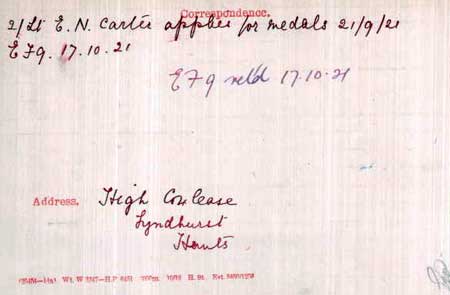 Correspondence.
2/Lt E. N. Carter applies for medals 21/9/21
E F 9. 17.10.21
E F 9 retd 17.10.21
Address.
High Coxlease
Lyndhurst
Hants.